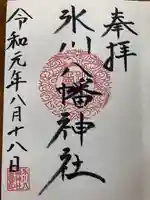 奉拝
氷川八幡神社
令和元年八月十八日